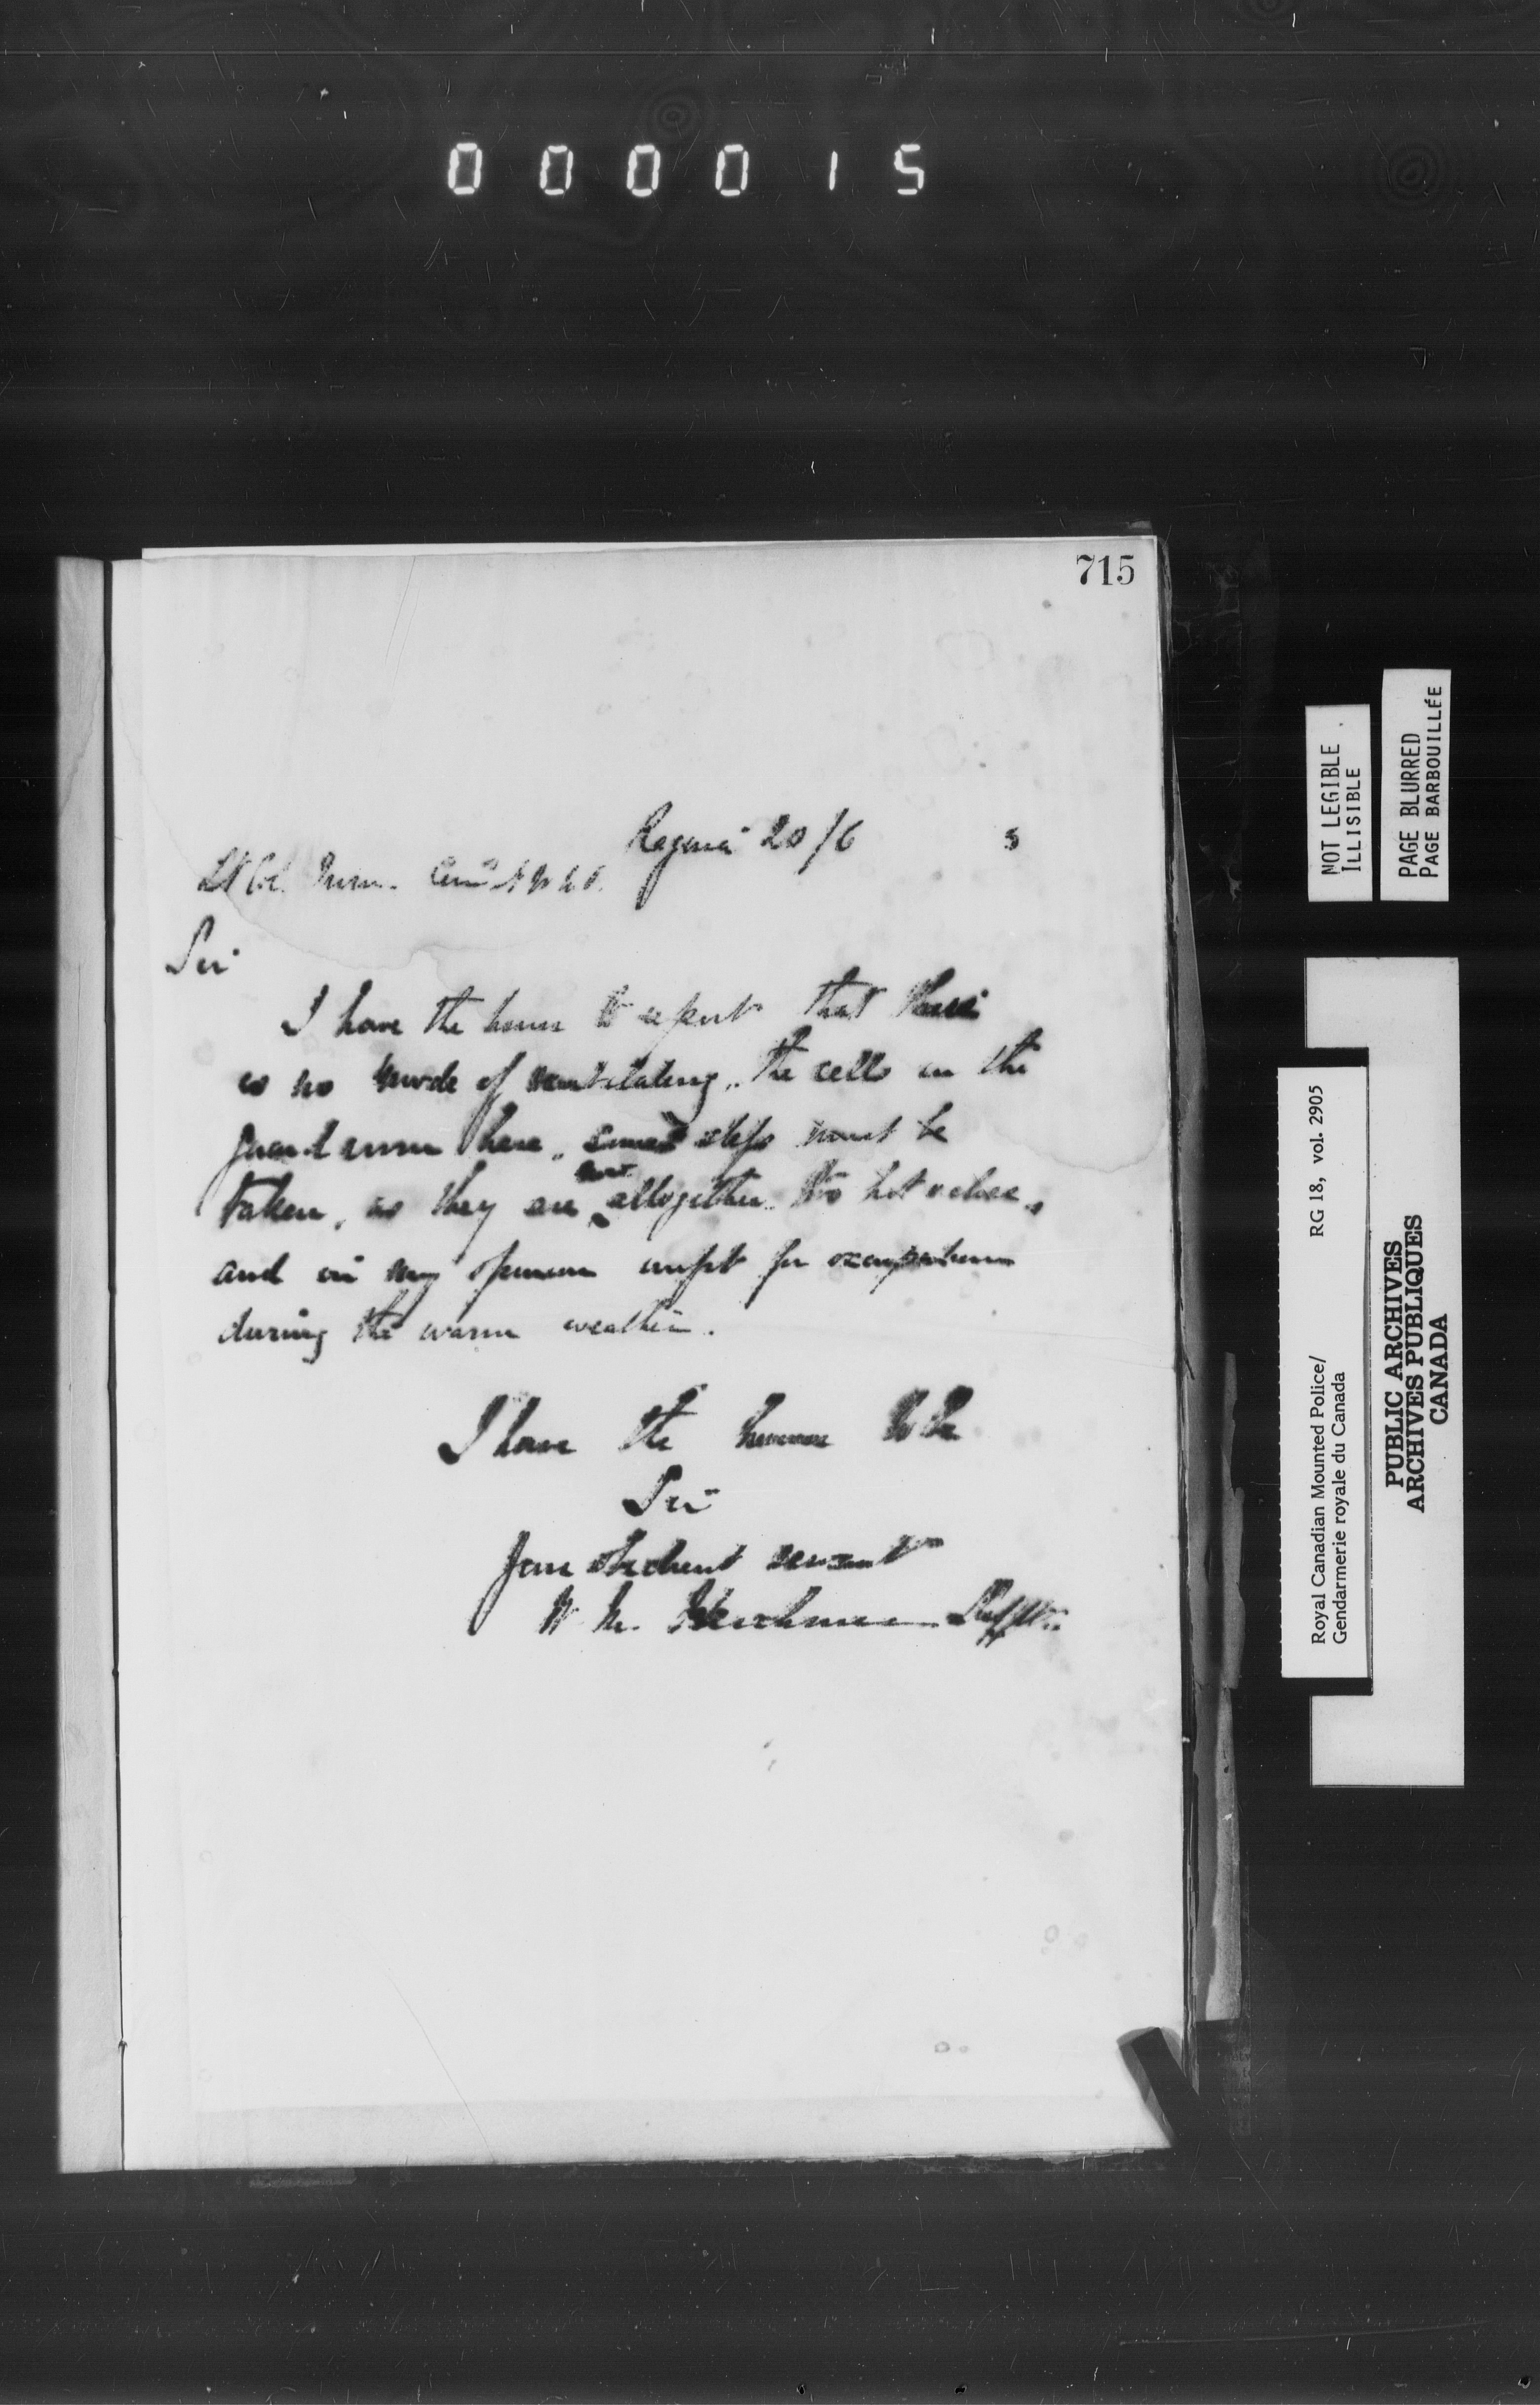 000015
715
Regina 20/6 3
Lt Col. Irvine. Com^r N W M P.
Sir
I have the honor to report that there
is no mode of ventilating the cells in the
guard room here, some steps must be
taken, as they are now altogether too hot & close,
and in my opinion unfit for occupation
during the warm weather.
I have the honour to be
Sir
Your obedient servant
W. M. Herchmer Supt.
NOT LEGIBLE
ILLISIBLE
PAGE BLURRED
PAGE BARBOUILLÉE
Royal Canadian Mounted Police/ RG 18, vol. 2905
Gendarmerie royale du Canada
PUBLIC ARCHIVES
ARCHIVES PUBLIQUES
CANADA